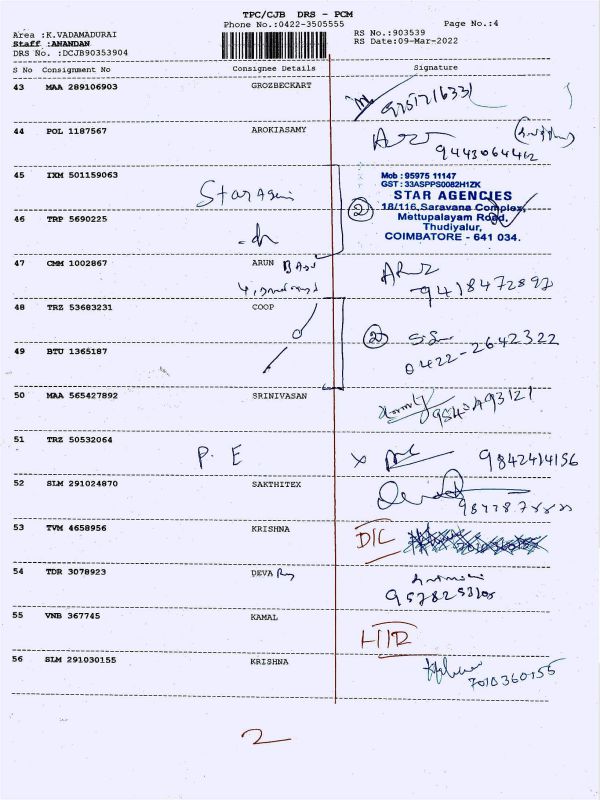 TPC/CJB DRS - PCM
Phone No.:0422-3505555
Page No.:4
Area :K.VADAMADURAI
RS No.:903539
Staff :ANANDAN
RS Date:09-Mar-2022
DRS No. :DCJB90353904
S No Consignment No Consignee Details Signature
43 MAA 289106903 GROZBECKART
9751716331
44 POL 1187567 AROKIASAMY
9443064412
45 IXM 501159063
Star Agen
Mob : 95975 11147
GST : 33ASPPS0082H1ZK
STAR AGENCIES
18/116, Saravana Complex,
Mettupalayam Road,
Thudiyalur,
COIMBATORE - 641 034.
2
46 TRP 5690225
47 CMM 1002867 ARUN
48 TRZ 53683231 COOP
2
0422-2642322
49 BTU 1365187
50 MAA 565427892 SRINIVASAN
51 TRZ 50532064
P. E
x
9842414156
52 SLM 291024870 SAKTHITEX
53 TVM 4658956 KRISHNA
DIC
54 TDR 3078923 DEVA
55 VNB 367745 KAMAL
56 SLM 291030155 KRISHNA
7010360155
2